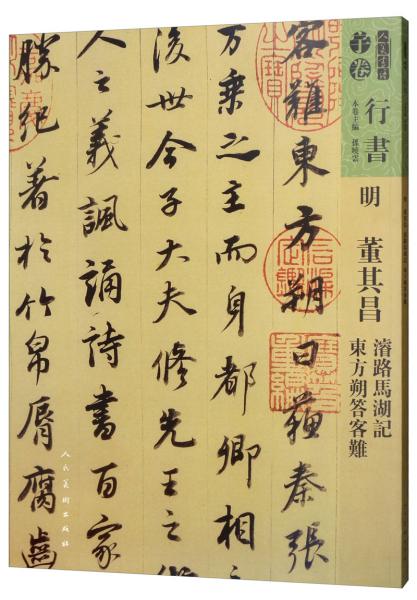 人美書譜
子卷
行書
本卷主編 孫曉雲
明 董其昌
濬路馬湖記
東方朔答客難
客難東方朔曰蘇秦張
万乘之主而身都卿相之
後世今子大夫修先王之
人之義諷誦詩書百家
勝紀著於竹帛脣腐齒
人民美術出版社